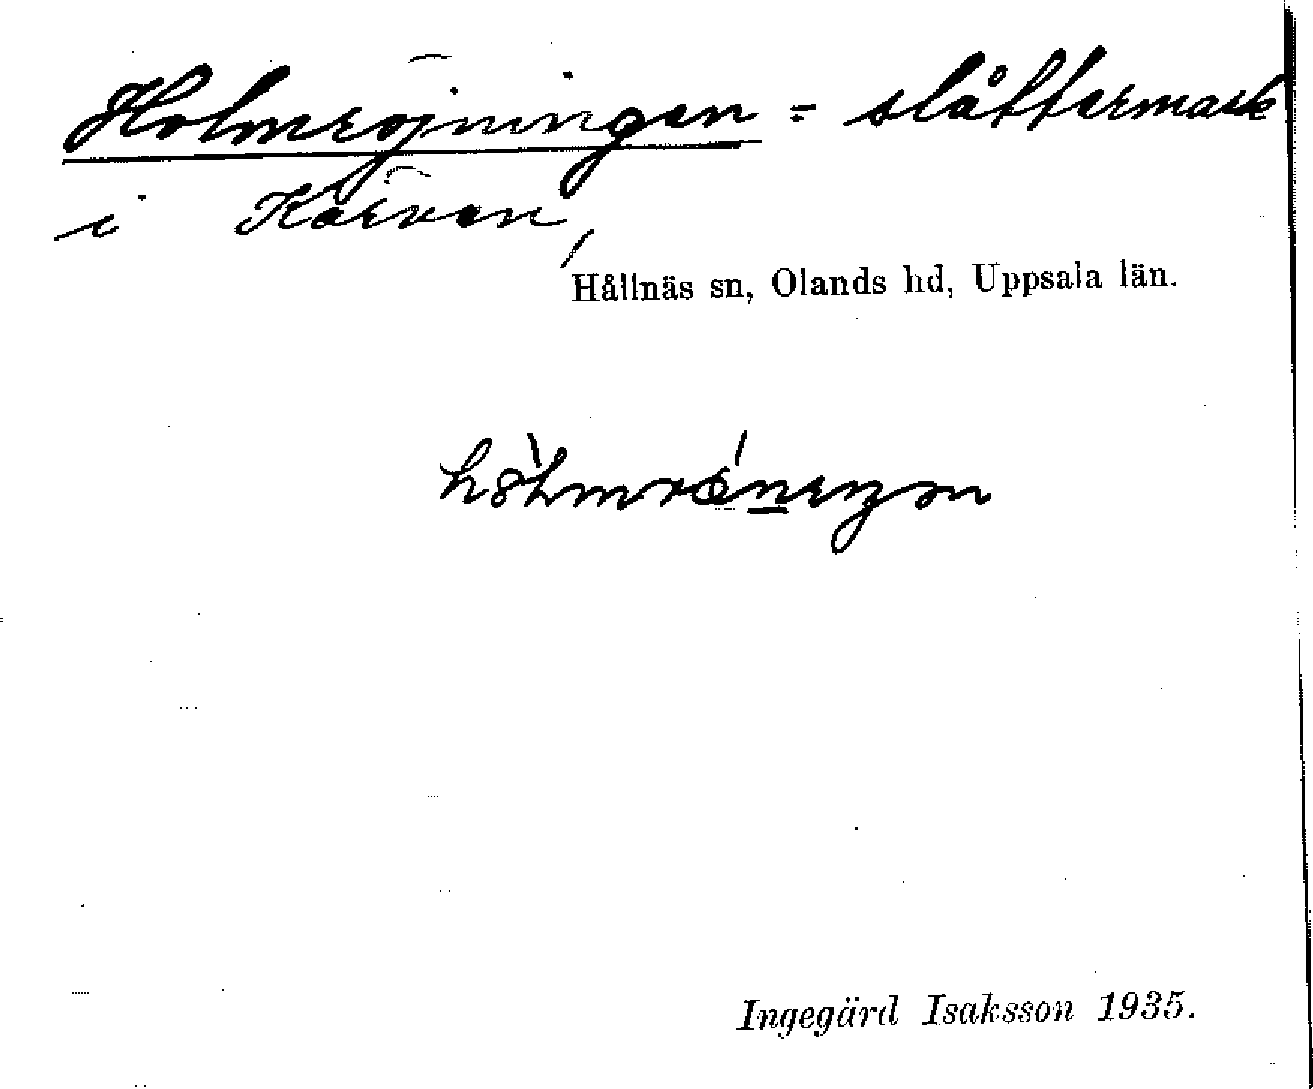 Holmröjningen = slåttermark
i Kärven,
Hållnäs sn, Olands hd, Uppsala län.
Ingegärd Isaksson 1935.